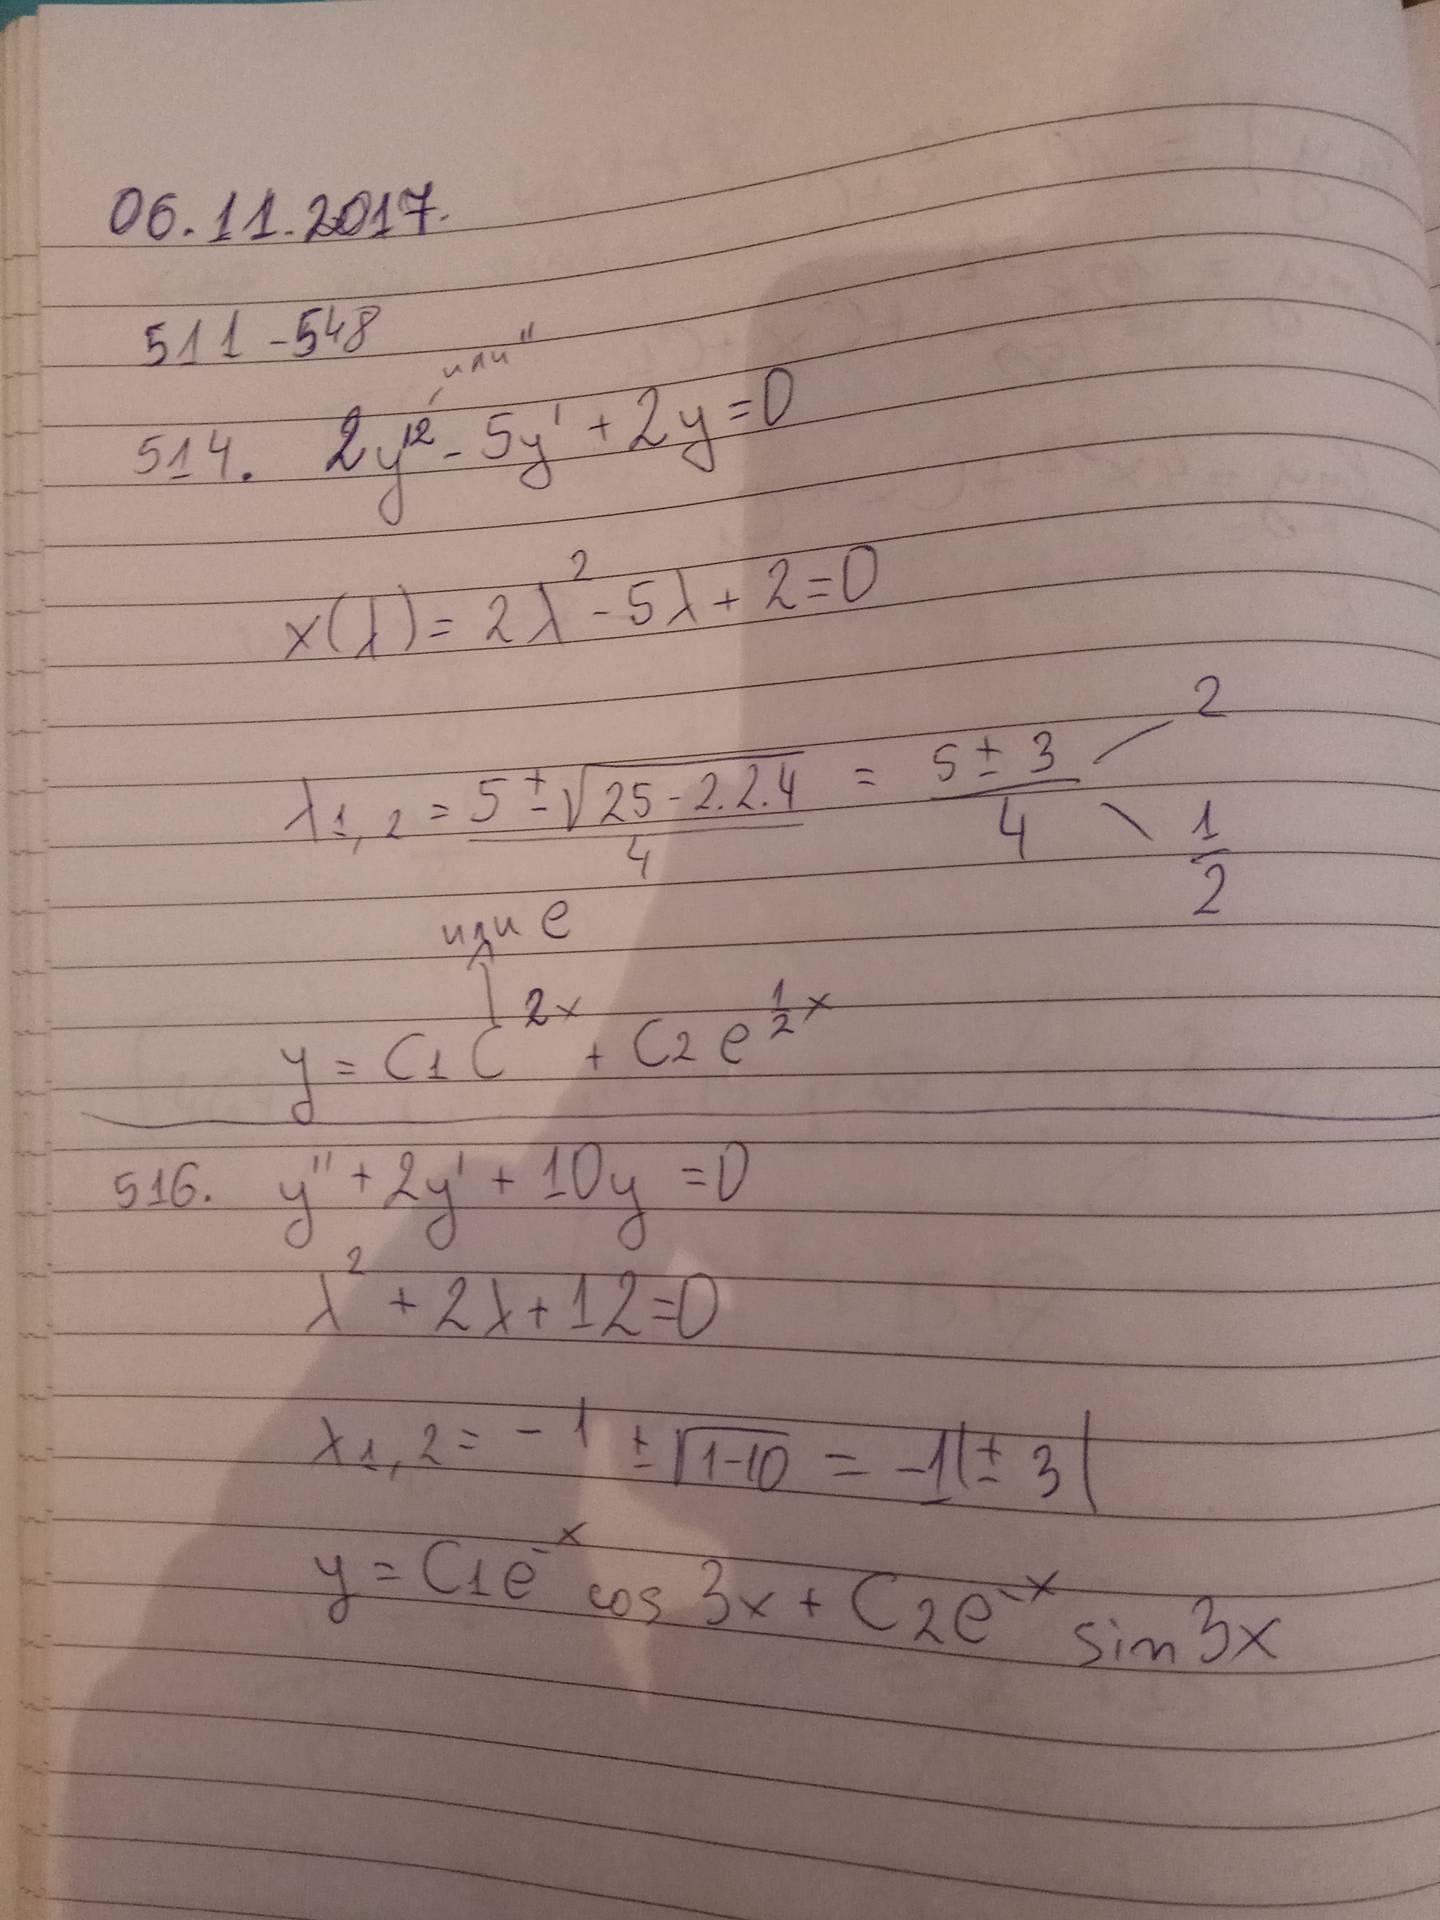 06.11.2017.
511-548
или "
514. 2y'² - 5y' + 2y = 0
x(λ) = 2λ² - 5λ + 2 = 0
λ1,2 = (5 ± √(25 - 2.2.4))/4 = (5 ± 3)/4 2 1/2
или e
y = C1 C^(2x) + C2 e^(1/2 x)
516. y'' + 2y' + 10y = 0
λ² + 2λ + 12 = 0
λ1,2 = -1 ± √(1-10) = -1 |± 3|
y = C1e^(-x) cos 3x + C2e^(-x) sin 3x